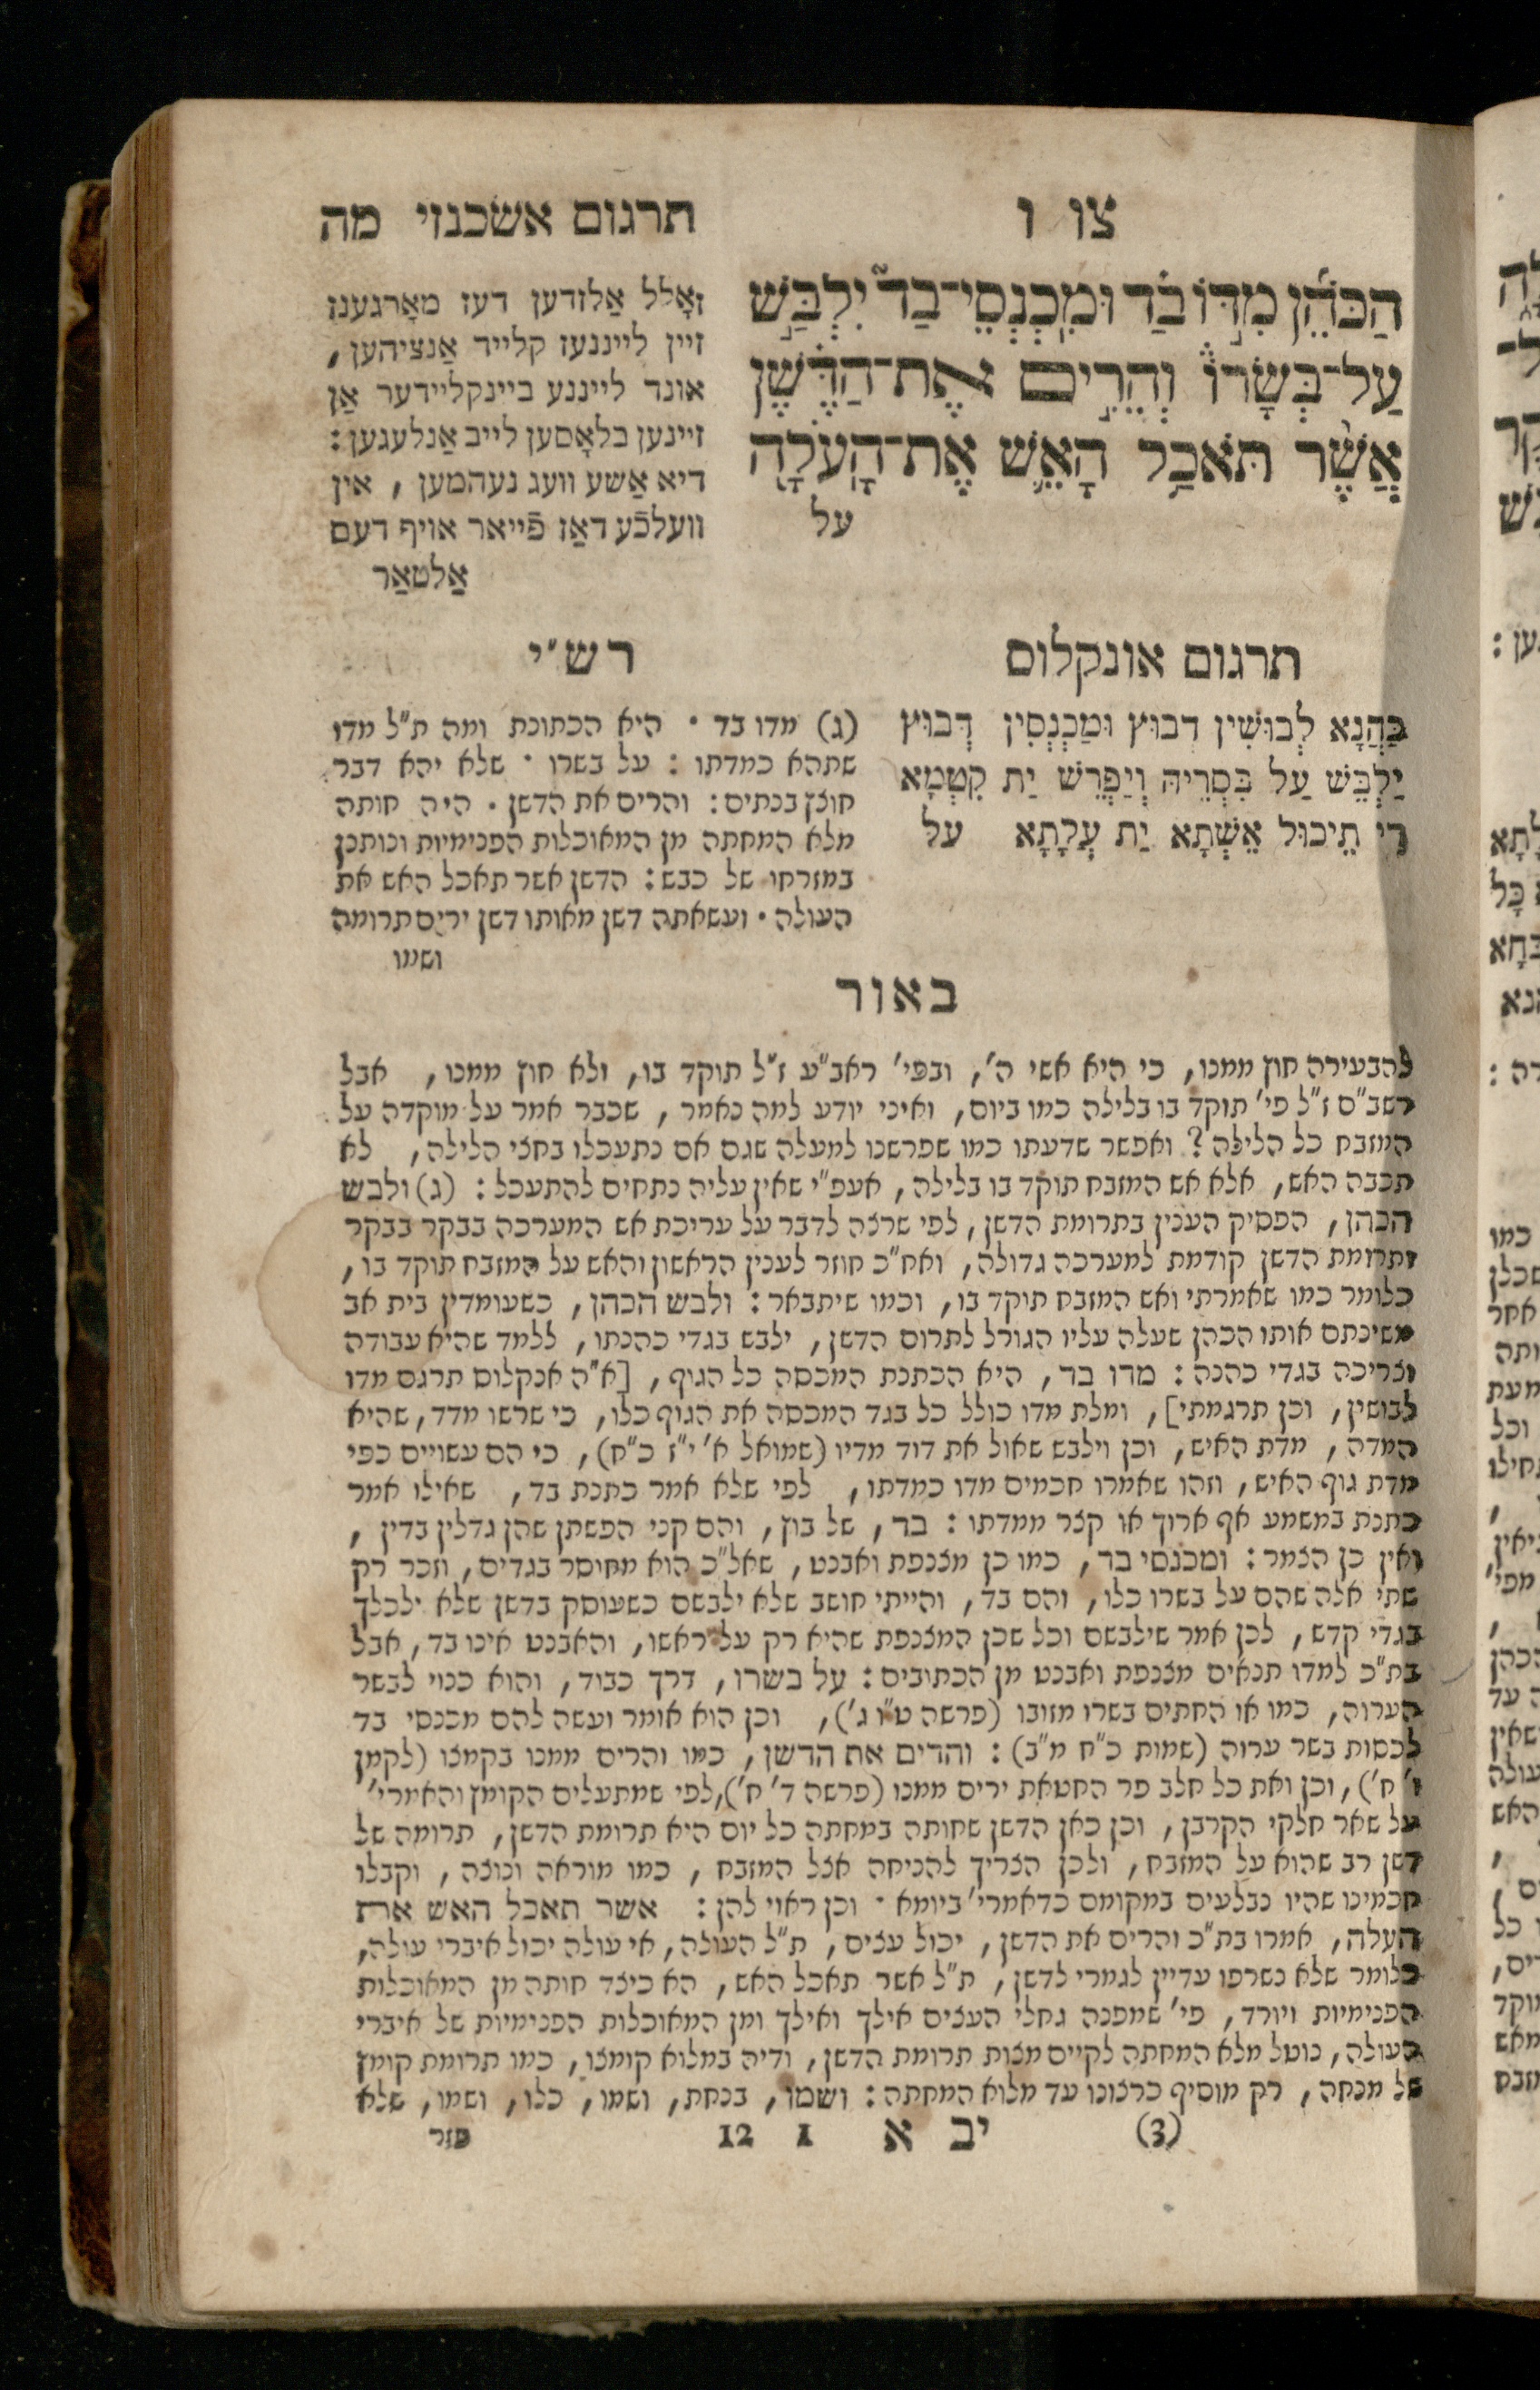 צו ו
תרגום אשכנזי מה
הַכֹּהֵ֜ן מִדּ֣וֹ בַ֗ד וּמִֽכְנְסֵי־בַד֮ יִלְבַּ֣שׁ
עַל־בְּשָׂרוֹ֒ וְהֵרִ֣ים אֶת־הַדֶּ֗שֶׁן
אֲשֶׁ֨ר תֹּאכַ֥ל הָאֵ֛שׁ אֶת־הָֽעֹלָ֖ה
על
זאָלל אַלזדען דעז מאָרגענז
זיין לייננעז קלייד אַנציהען,
אונד לייננע ביינקליידער אַן
זיינען בלאָסען לייב אַנלעגען:
דיא אַשע וועג נעהמען, אין
וועלכֿע דאַז פֿייאר אויף דעם
אַלטאַר
תרגום אונקלוס
כַּהֲנָא לְבוּשִׁין דְבוּץ וּמִכְנְסִין דְּבוּץ
יַלְבֵּשׁ עַל בִּסְרֵיהּ וְיַפְרֵשׁ יַת קִטְמָא
דִי תֵיכוּל אֵשָׁתָא יַת עֲלָתָא על
רש״י
(ג) מדו בד · היא הכתונת ומה ת״ל מדו
שתהא כמדתו : על בשרו · שלא יהא דבר
חוצץ בנתים: והרים את הדשן · היה חותה
מלא המחתה מן המאוכלות הפנימיות ונותנן
במזרחו של כבש: הדשן אשר תאכל האש את
העולה · ועשאתה דשן מאותו דשן ירים תרומה
ושמו
באור
להבעירה חוץ ממנו, כי היא אשי ה׳, ובפי׳ ראב״ע ז״ל תוקד בו, ולא חוץ ממנו, אבל
רשב״ם ז״ל פי׳ תוקד בו בלילה כמו ביום, ואיני יודע למה נאמר, שכבר אמר על מוקדה על
המזבח כל הלילה? ואפשר שדעתו כמו שפרשנו למעלה שגם אם נתעכלו בחצי הלילה, לא
תכבה האש, אלא אש המזבח תוקד בו בלילה, אעפ״י שאין עליה נתחים להתעכל: (ג) ולבש
הכהן, הפסיק הענין בתרומת הדשן, לפי שרצה לדבר על עריכת אש המערכה בבקר בבקר
ותרומת הדשן קודמת למערכה גדולה, ואח״כ חוזר לענין הראשון והאש על המזבח תוקד בו,
כלומר כמו שאמרתי ואש המזבח תוקד בו, וכמו שיתבאר: ולבש הכהן, כשעומדין בית אב
משיכתם אותו הכהן שעלה עליו הגורל לתרום הדשן, ילבש בגדי כהנתו, ללמד שהיא עבודה
וצריכה בגדי כהנה: מדו בד, היא הכתנת המכסה כל הגוף, [א״ה אנקלוס תרגם מדו
לבושין, וכן תרגמתי], ומלת מדו כולל כל בגד המכסה את הגוף כלו, כי שרשו מדד, שהיא
המדה, מדת האיש, וכן וילבש שאול את דוד מדיו (שמואל א׳ י״ז כ״ח), כי הם עשויים כפי
מדת גוף האיש, וזהו שאמרו חכמים מדו כמדתו, לפי שלא אמר כתנת בד, שאילו אמר
כתנת במשמע אף ארוך או קצר ממדתו: בד, של בוץ, והם קני הפשתן שהן גדלין בדין,
ואין כן הצמר: ומכנסי בד, כמו כן מצנפת ואבנט, שאל״כ הוא מחוסר בגדים, וזכר רק
שתי אלה שהם על בשרו כלו, והם בד, והייתי חושב שלא ילבשם כשעוסק בדשן שלא ילכלך
בגדי קדש, לכן אמר שילבשם וכל שכן המצנפת שהיא רק על ראשו, והאבנט אינו בד, אבל
בת״כ למדו תנאים מצנפת ואבנט מן הכתובים: על בשרו, דרך כבוד, והוא כנוי לבשר
הערוה, כמו או החתים בשרו מזובו (פרשה ט״ו ג׳), וכן הוא אומר ועשה להם מכנסי בד
לכסות בשר ערוה (שמות כ״ח מ״ב): והרים את הדשן, כמו והרים ממנו בקמצו (לקמן
ו׳ ח׳), וכן ואת כל חלב פר החטאת ירים ממנו (פרשה ד׳ ח׳), לפי שמתעלים הקומץ והאמרי׳
על שאר חלקי הקרבן, וכן כאן הדשן שחותה במחתה כל יום היא תרומת הדשן, תרומה של
דשן רב שהוא על המזבח, ולכן הצריך להניחה אצל המזבח, כמו מוראה ונוצה, וקבלו
חכמינו שהיו נבלעים במקומם כדאמרי׳ ביומא · וכן ראוי להן: אשר תאכל האש את
העלה, אמרו בת״כ והרים את הדשן, יכול עצים, ת״ל העולה, אי עולה יכול איברי עולה,
כלומר שלא נשרפו עדיין לגמרי לדשן, ת״ל אשר תאכל האש, הא כיצד חותה מן המאוכלות
הפנימיות ויורד, פי׳ שמפנה גחלי העצים אילך ואילך ומן המאוכלות הפנימיות של איברי
העולה, נוטל מלא המחתה לקיים מצות תרומת הדשן, ודיה במלוא קומצו, כמו תרומת קומץ
של מנחה, רק מוסיף כרצונו עד מלוא המחתה: ושמו, בנחת, ושמו, כלו, ושמו, שלא
(3) יב א 1 12